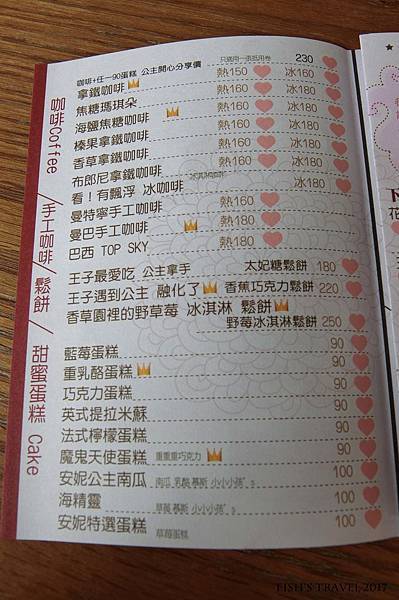 咖啡+任一90蛋糕 公主開心分享價 只適用一張抵用卷 230
拿鐵咖啡 熱150 冰160
焦糖瑪琪朵 熱160 冰180
海鹽焦糖咖啡 熱160 冰180
榛果拿鐵咖啡 熱160 冰180
香草拿鐵咖啡 熱160 冰180
布郎尼拿鐵咖啡 熱160 冰180
看！有飄浮 冰咖啡 冰淇淋咖啡 冰180
曼特寧手工咖啡 熱180
曼巴手工咖啡 熱180
巴西 TOP SKY 熱180
王子最愛吃 公主拿手 太妃糖鬆餅 180
王子遇到公主 融化了 香蕉巧克力鬆餅 220
香草園裡的野草莓 冰淇淋 鬆餅
野莓冰淇淋鬆餅 250
藍莓蛋糕 90
重乳酪蛋糕 90
巧克力蛋糕 90
英式提拉米蘇 90
法式檸檬蛋糕 90
魔鬼天使蛋糕 重重重巧克力 90
安妮公主南瓜 南瓜 乳酪 慕斯 小小小孩's 100
海精靈 草莓 慕斯 小小小孩's 100
安妮特選蛋糕 草莓蛋糕 100
咖啡Coffee
手工咖啡
鬆餅
甜蜜蛋糕 Cake
TISH'S TRAVEL 2017